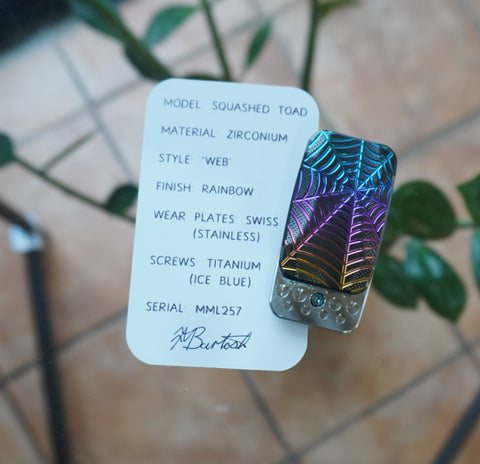 MODEL: SQUASHED TOAD
MATERIAL: ZIRCONIUM
STYLE: "WEB"
FINISH: RAINBOW
WEAR PLATES: SWISS
(STAINLESS)
SCREWS: TITANIUM
(ICE BLUE)
SERIAL: MML257
Burtosh